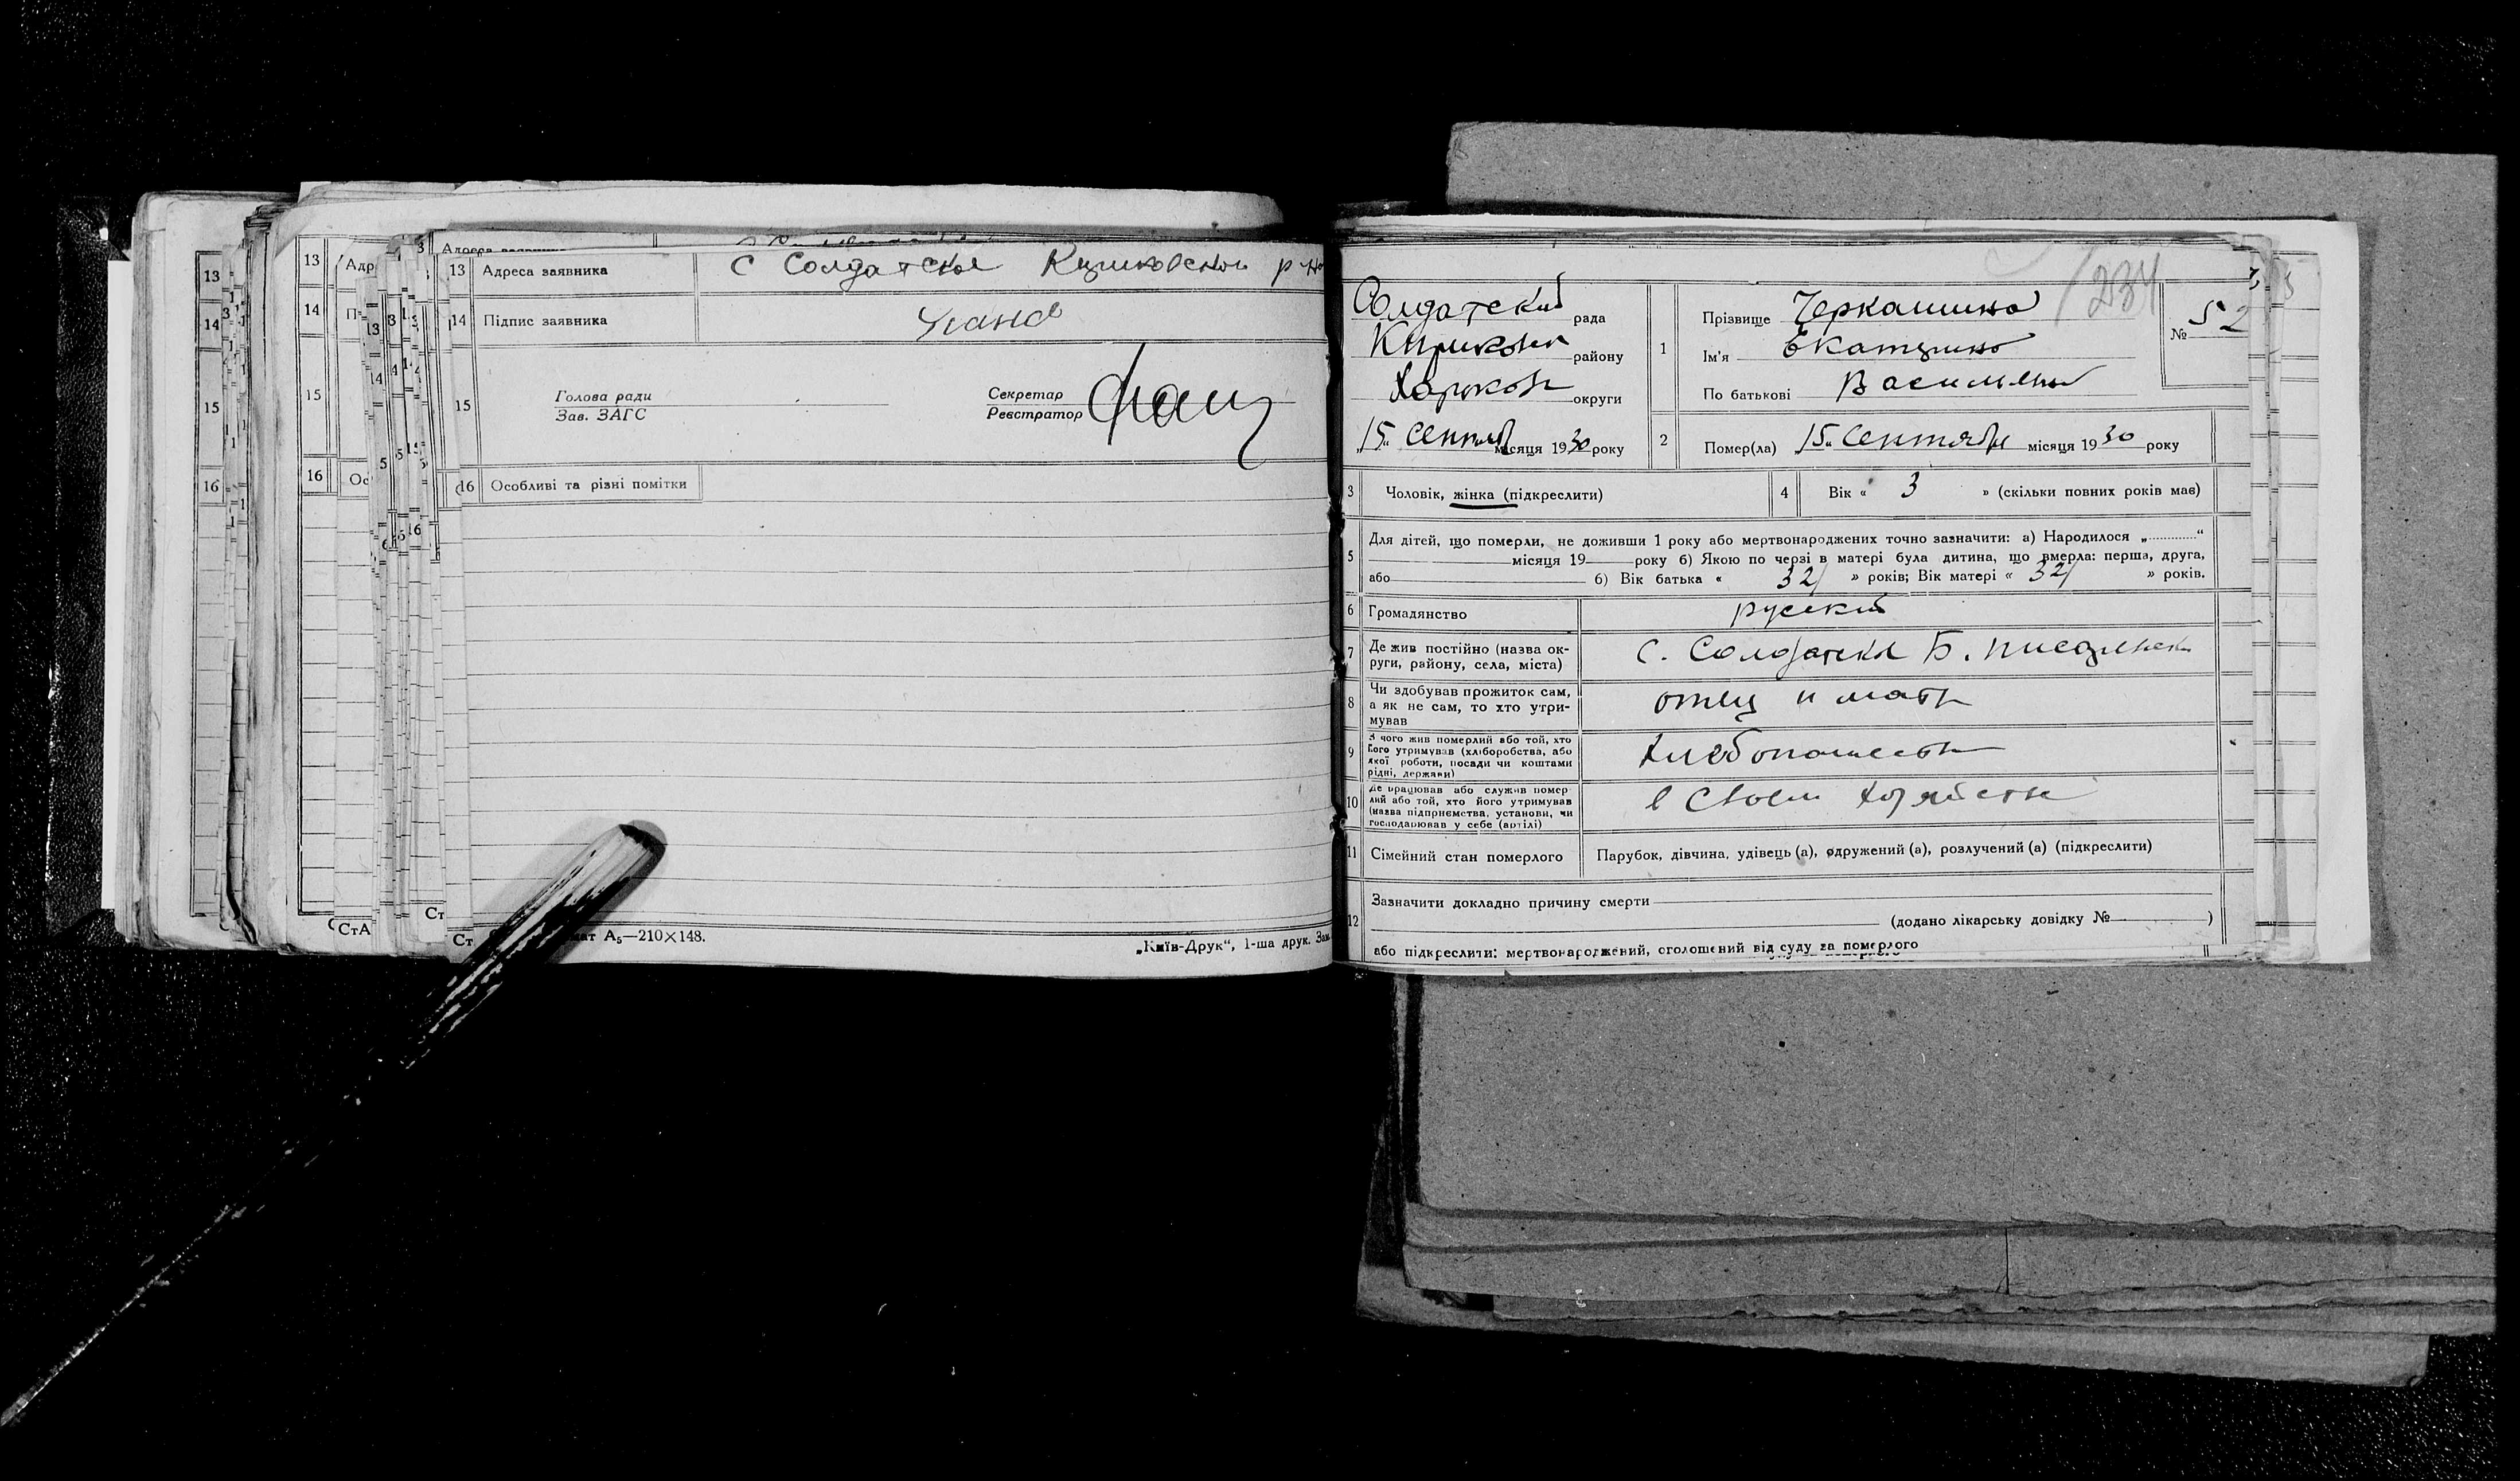 13 Адреса заявника с Солдатское Кириковского р-на
14 Підпис заявника
15 Голова ради Секретар
Зав. ЗАГС Реєстратор
16 Особливі та різні помітки
А₅—210×148. „Київ-Друк“, 1-ша друк. Зам.
234
Солдатский рада
Кириковск району
Харьков округи
„15“ Сентяб місяця 1930 року
1 Прізвище Черкашина
Ім'я Екатерина
По батькові Васильевна
№ 52
2 Помер(ла) „15“ Сентября місяця 1930 року
3 Чоловік, жінка (підкреслити)
4 Вік « 3 » (скільки повних років має)
5 Для дітей, що померли, не доживши 1 року або мертвонароджених точно зазначити: а) Народилося „............“
місяця 19 року б) Якою по черзі в матері була дитина, що вмерла: перша, друга,
або б) Вік батька « 32 » років; Вік матері « 32 » років.
6 Громадянство русский
7 Де жив постійно (назва ок-
руги, району, села, міста) с. Солдатское Б. Писаревск
8 Чи здобував прожиток сам,
а як не сам, то хто утри-
мував отец и мать
9 З чого жив померлий або той, хто
його утримував (хліборобства, або
якої роботи, посади чи коштами
рідні, держави) Хлебопашеств
10 Де працював або служив помер
лий або той, хто його утримував
(назва підприємства, установи, чи
господарював у себе (артілі) в своем хозяйстве
11 Сімейний стан померлого Парубок, дівчина, удівець (а), одружений (а), розлучений (а) (підкреслити)
12 Зазначити докладно причину смерти
(додано лікарську довідку № )
або підкреслити: мертвонароджений, оголошений від суду за померлого